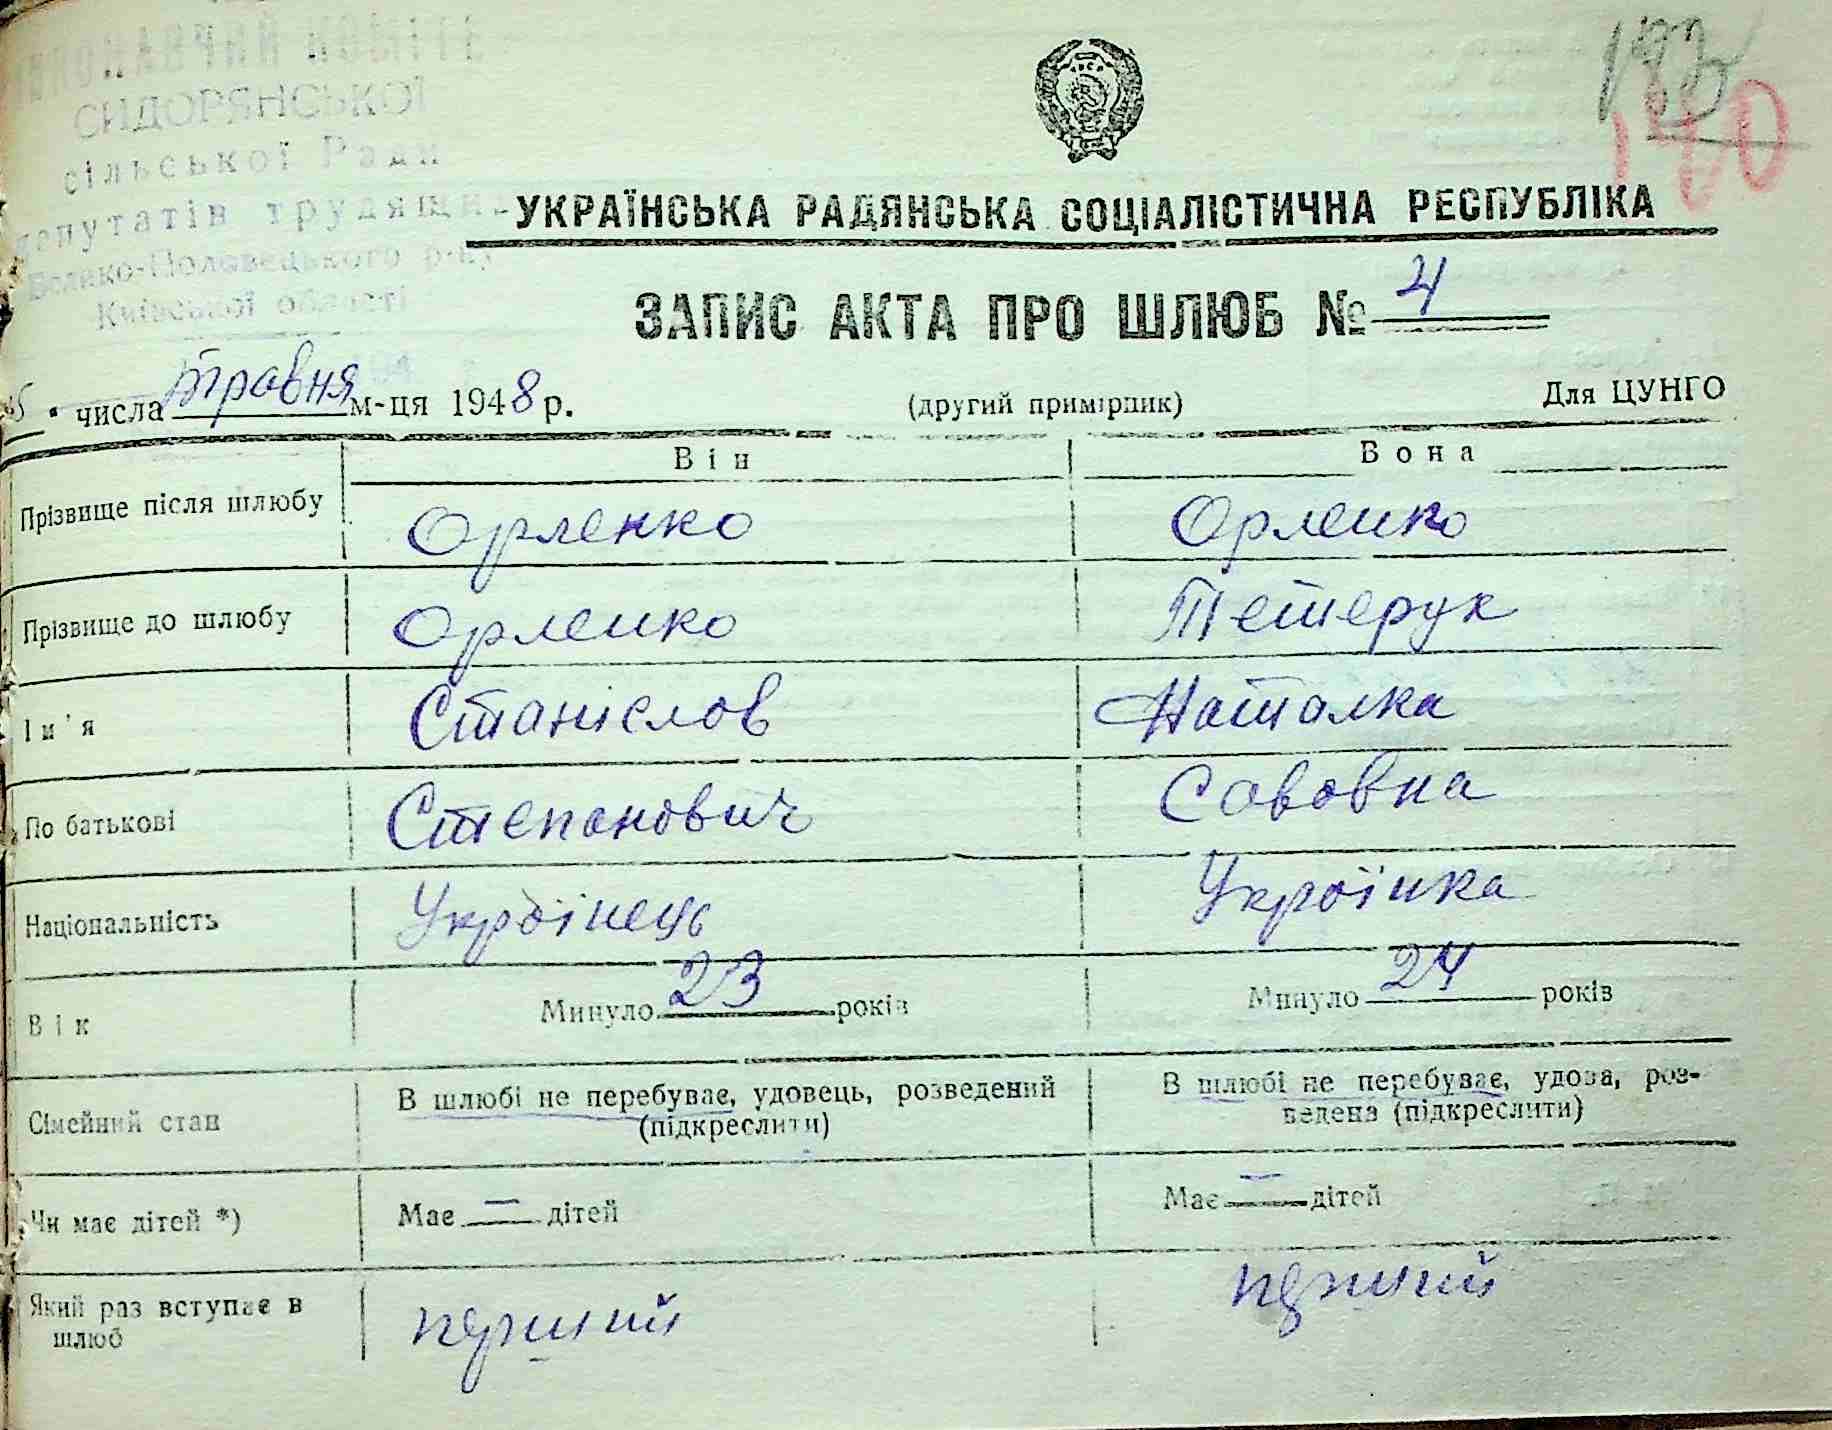 ВИКОНАВЧИЙ КОМІТЕТ
СИДОРЯНСЬКОЇ
сільської Ради
депутатів трудящих
Велико-Половецького р-ну
Київської області
УКРАЇНСЬКА РАДЯНСЬКА СОЦІАЛІСТИЧНА РЕСПУБЛІКА
ЗАПИС АКТА ПРО ШЛЮБ № 4
числа травня м-ця 1948 р. (другий примірник) Для ЦУНГО
Він Вона
Прізвище після шлюбу Орленко Орленко
Прізвище до шлюбу Орленко Тетерук
Ім'я Станіслов Наталка
По батькові Степанович Сововна
Національність Українець Українка
Вік Минуло 23 років Минуло 24 років
Сімейний стан В шлюбі не перебуває, удовець, розведений (підкреслити) В шлюбі не перебуває, удова, роз-
ведена (підкреслити)
Чи має дітей *) Має — дітей Має — дітей
Який раз вступає в шлюб перший перший